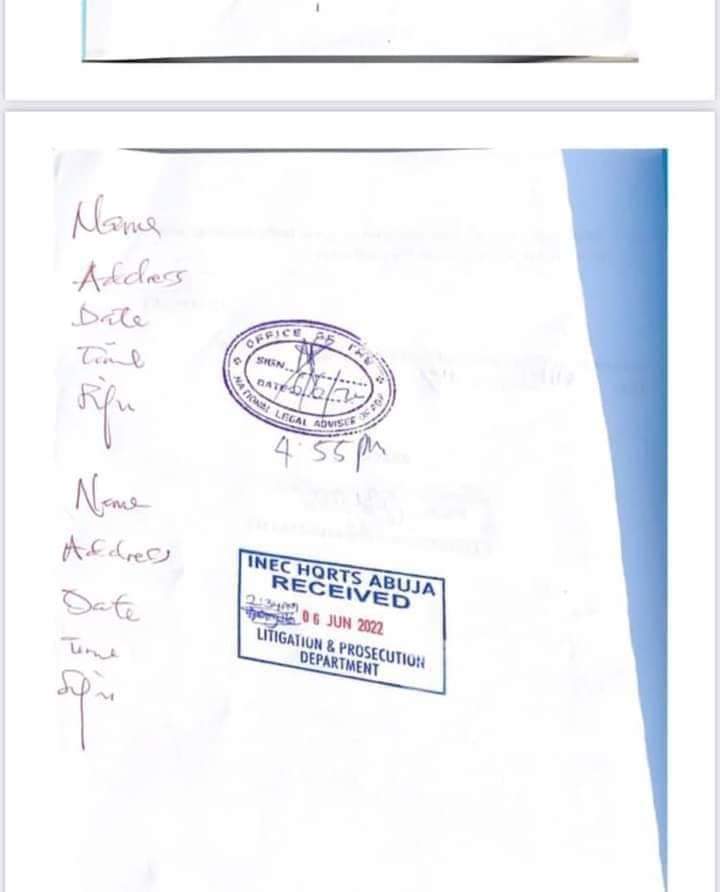 Name
Address
Date
Time
Sign
OFFICE OF THE
SIGN
DATE
NATIONAL LEGAL ADVISER
4:55pm
Name
Address
Date
Time
Sign
INEC HQRTS ABUJA
RECEIVED
2:34PM
06 JUN 2022
LITIGATION & PROSECUTION
DEPARTMENT